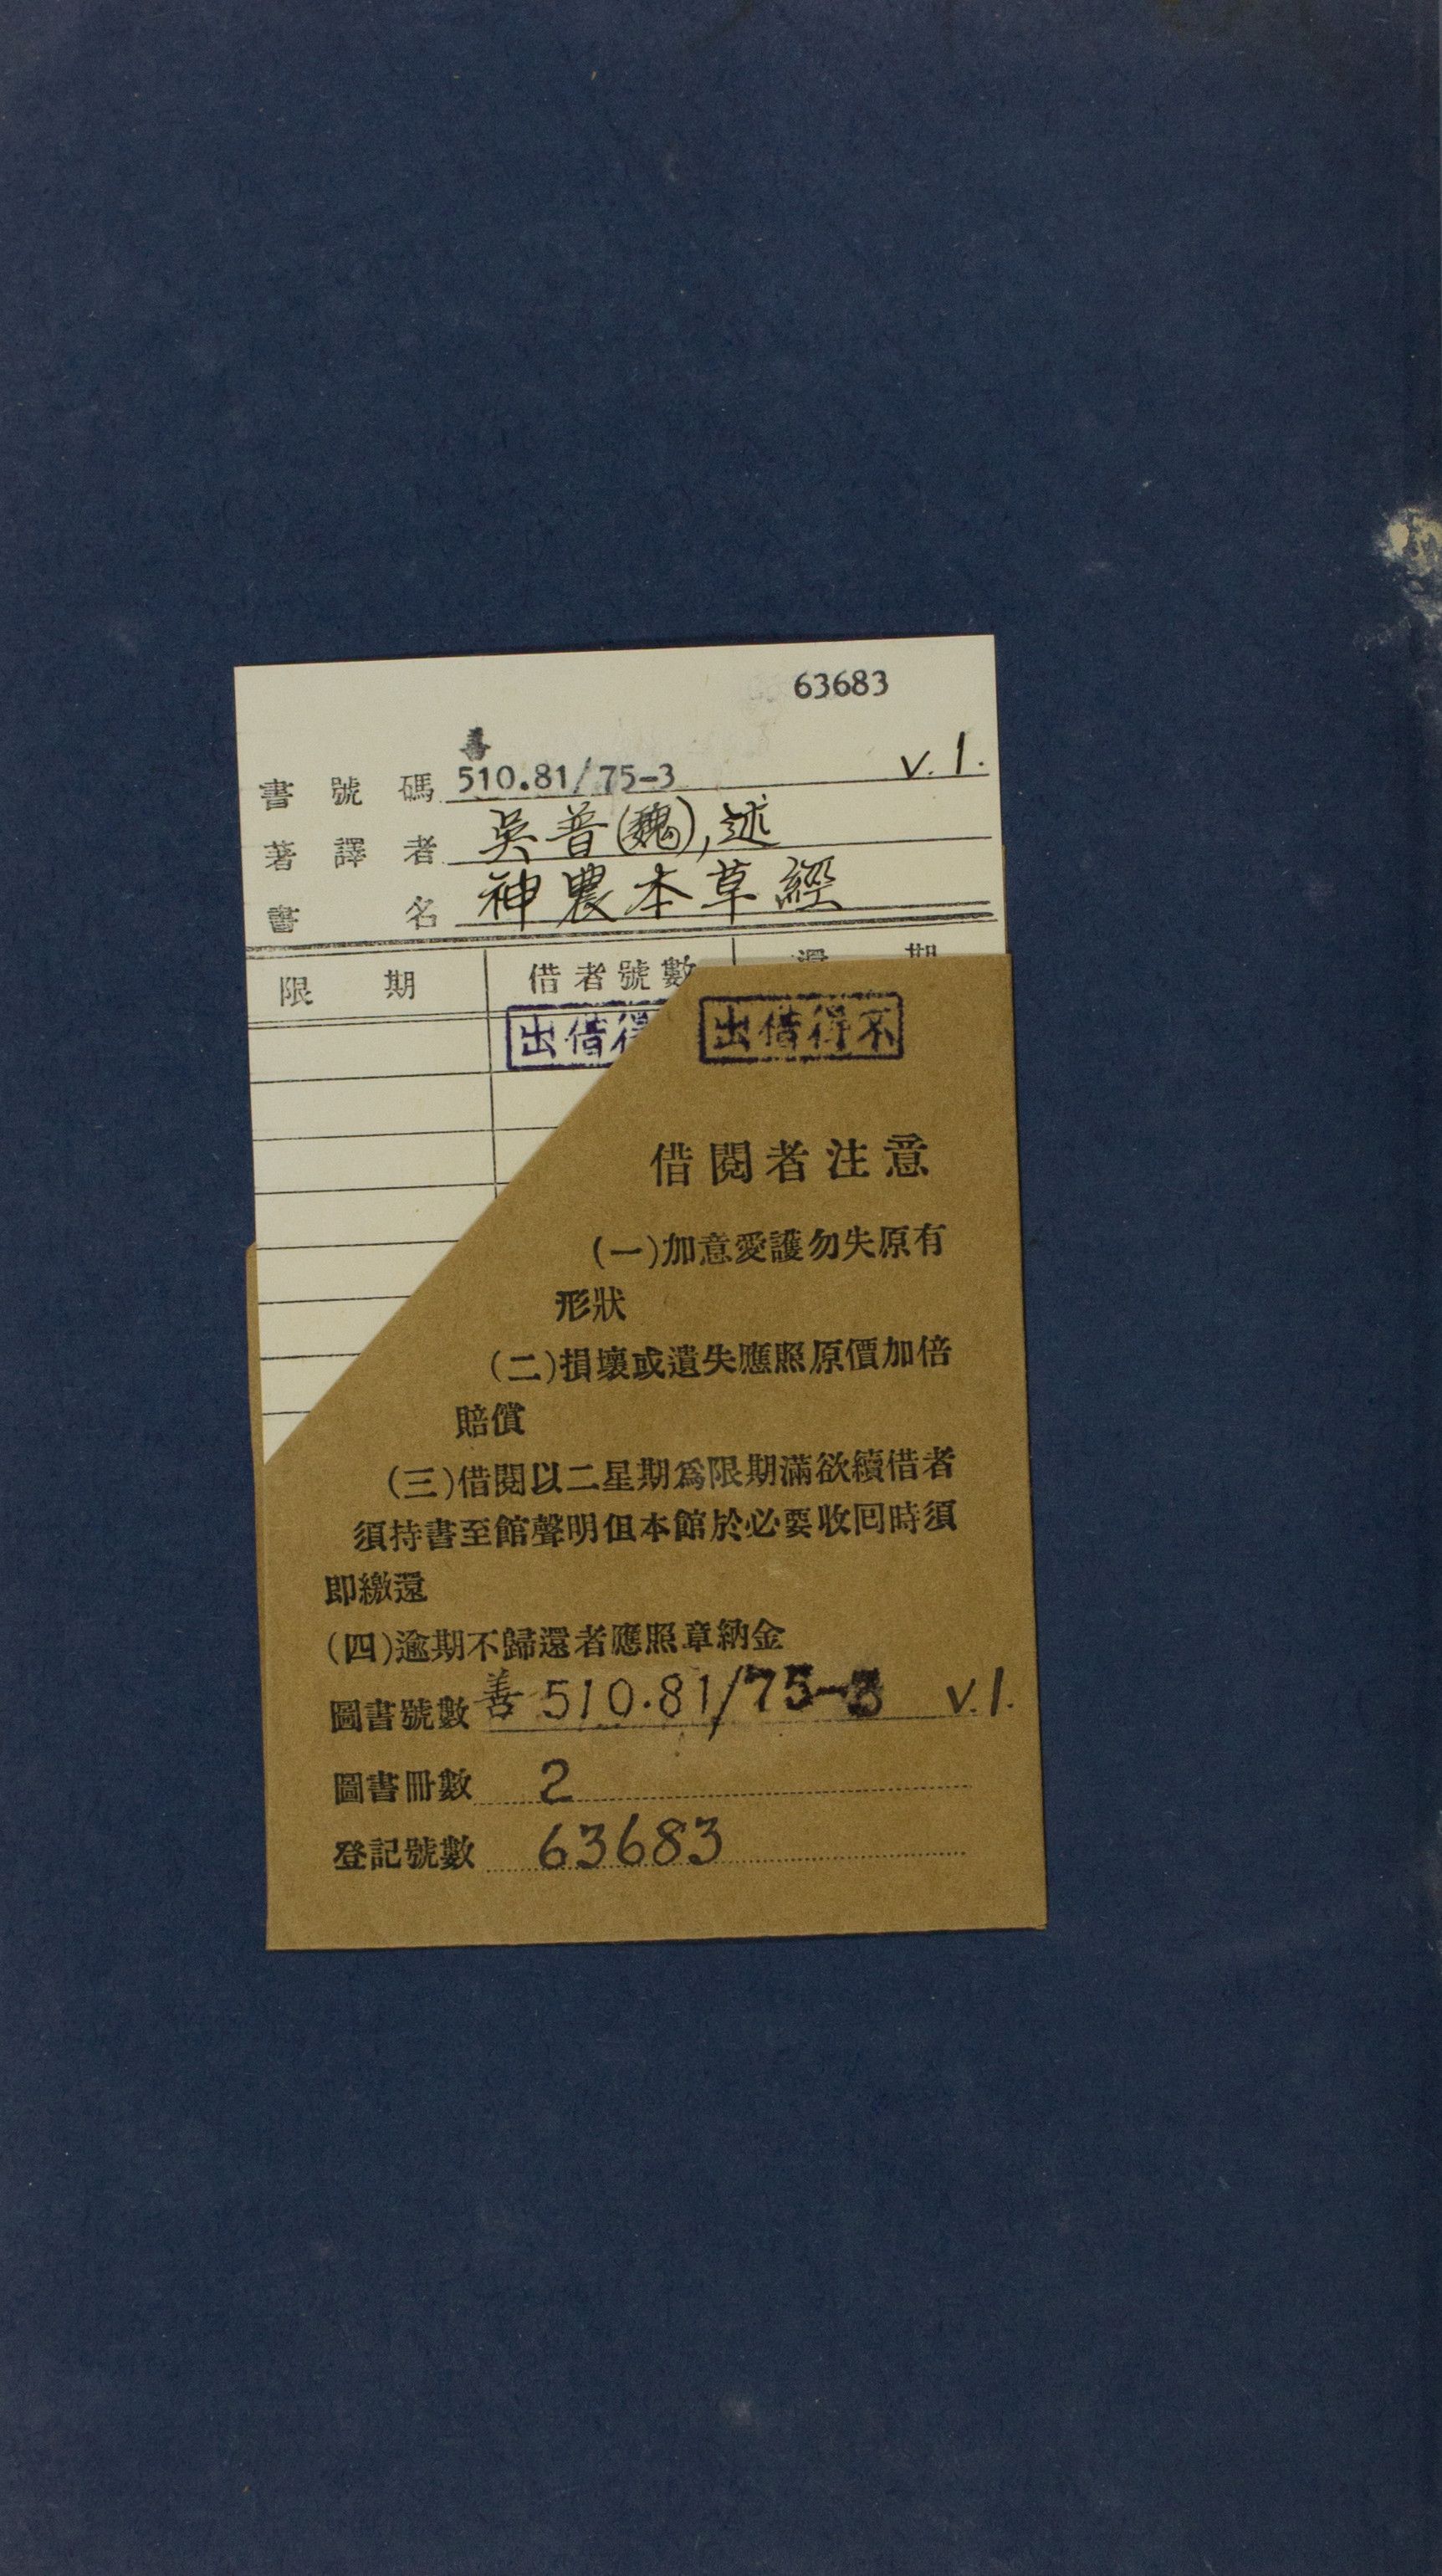 63683
善
書號碼 510.81/75-3 v.1.
著譯者 吳普(魏),述
書名 神農本草經
限期 借者號數 還期
出借得
出借得不
借閱者注意
(一)加意愛護勿失原有
形狀
(二)損壞或遺失應照原價加倍
賠償
(三)借閱以二星期爲限期滿欲續借者
須持書至館聲明但本館於必要收回時須
即繳還
(四)逾期不歸還者應照章納金
圖書號數 善 510.81/75-3 v.1.
圖書冊數 2
登記號數 63683